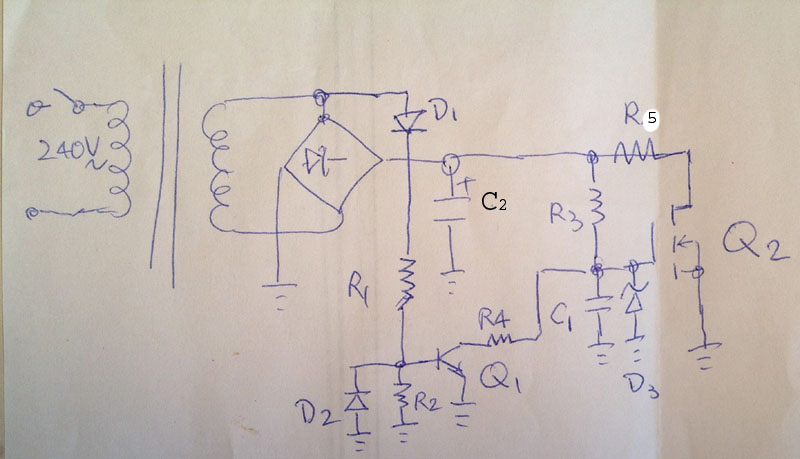 240V~
D1
R5
C2
R3
Q2
R1
R4
C1
Q1
D2
R2
D3
+